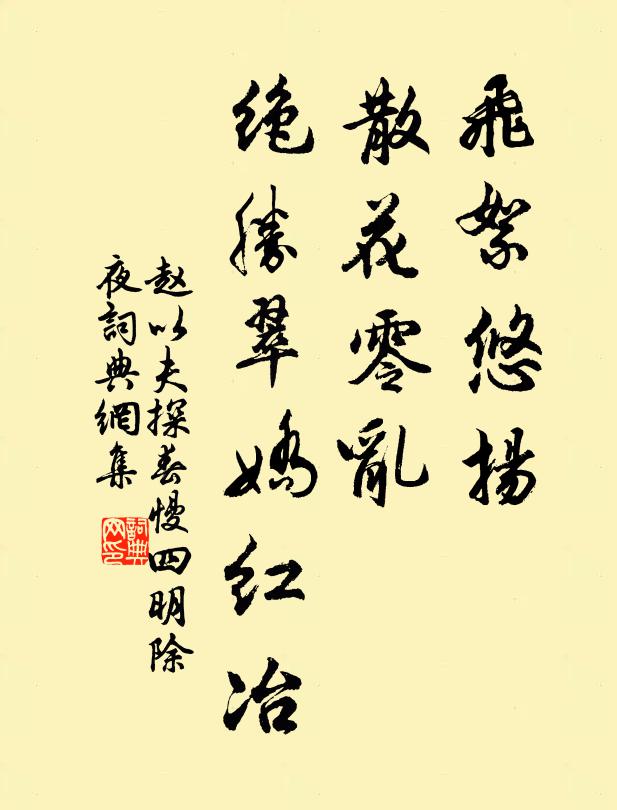 飛絮悠揚
散花零亂
绝勝翠嬌紅冶
赵以夫探春慢四明除
夜詞典網集
詞典
网印